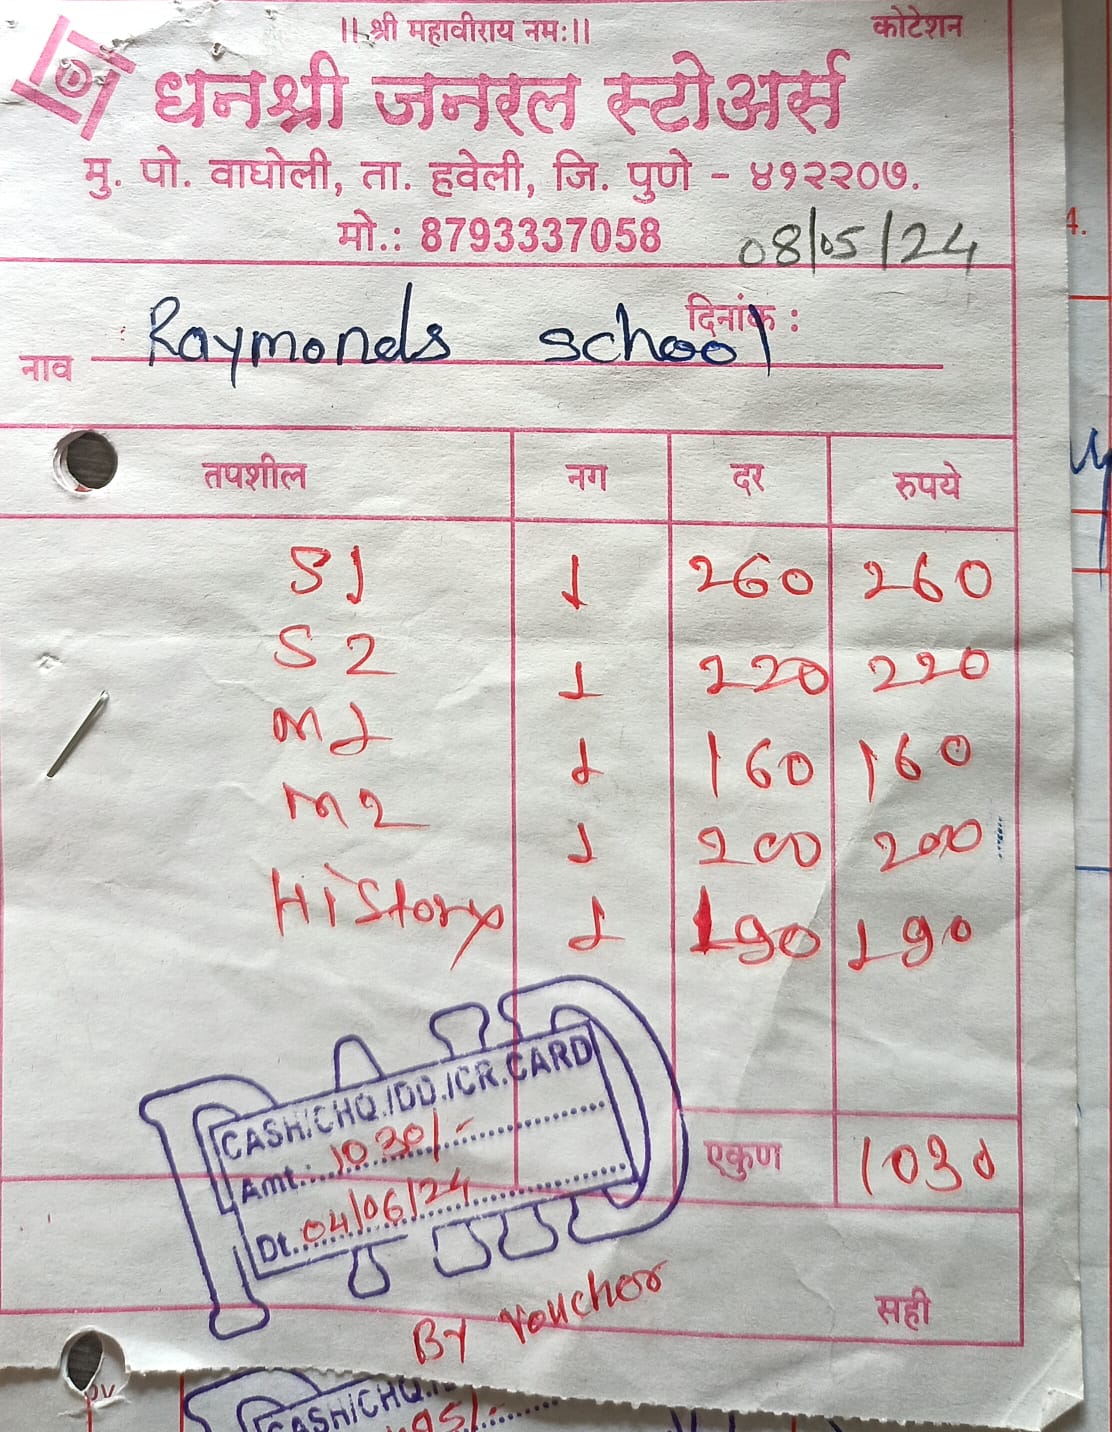 ।। श्री महावीराय नमः।। कोटेशन
धनश्री जनरल स्टोअर्स
मु. पो. वाघोली, ता. हवेली, जि. पुणे - ४१२२०७.
मो.: 8793337058 08/05/24
दिनांक :
नाव Raymonds school
तपशील नग दर रुपये
S1 1 260 260
S2 1 220 220
M1 1 160 160
M2 1 200 200
History 1 190 190
CASH/CHQ./DD./CR.CARD
Amt.: 1030/-
एकुण 1030
Dt. 04/06/24
सही
By Voucher
CASH/CHQ.